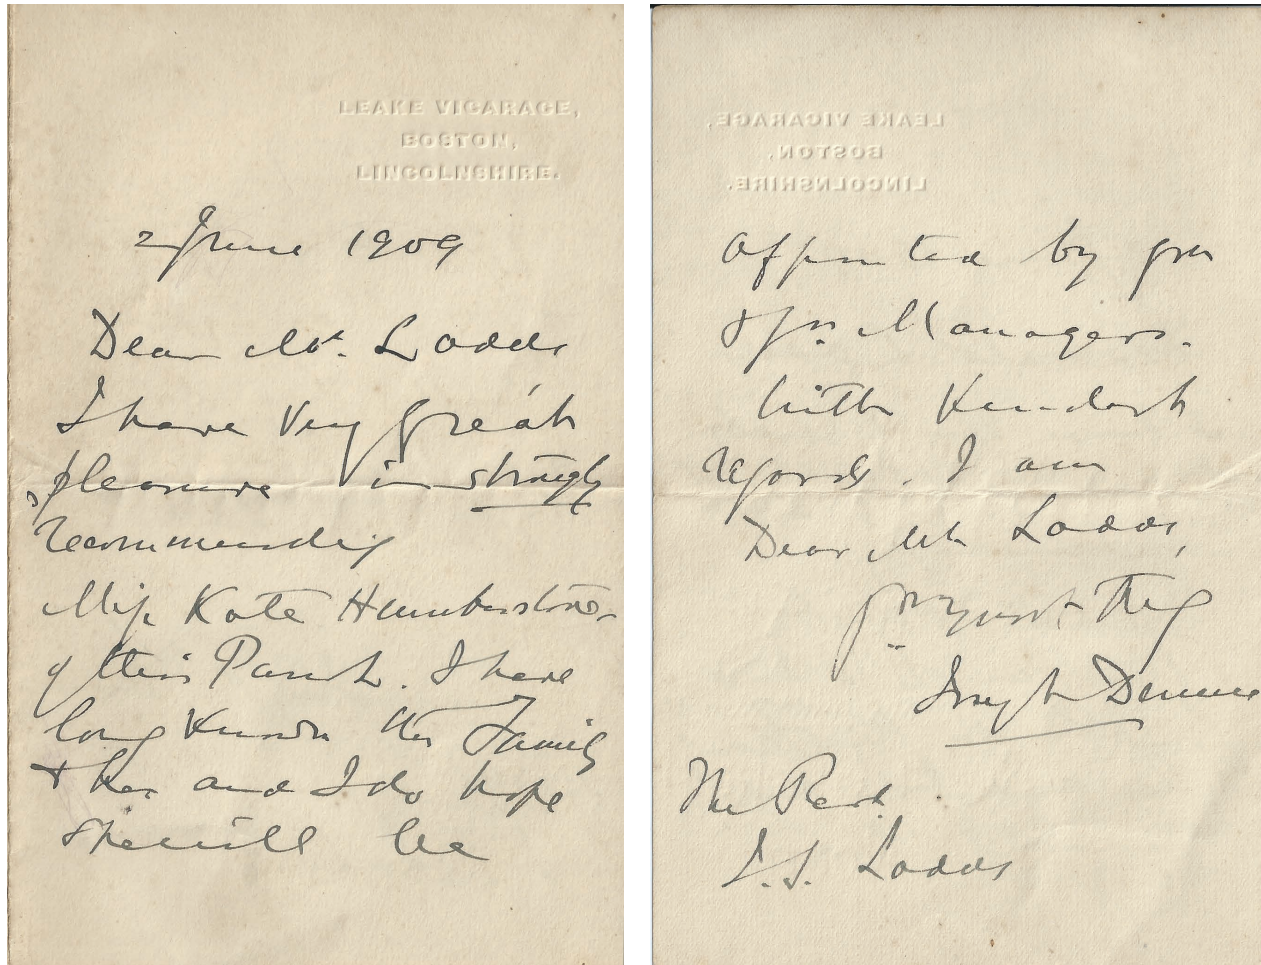 LEAKE VICARAGE,
BOSTON,
LINCOLNSHIRE.
2 June 1909
Dear Mr. Ladds
I have very great
pleasure in strongly
recommending
Miss Kate Humberstone
of this Parish. I have
long known the Family
+ her and I do hope
she will be
LEAKE VICARAGE,
BOSTON,
LINCOLNSHIRE.
appointed by you
& yr. Managers.
With Kindest
regards. I am
Dear Mr Ladds,
Dennis
The Revd.
S. Ladds